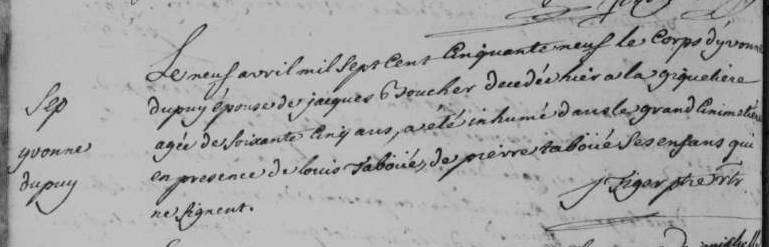 Sep
yvonne
dupuy
Le neuf avril mil sept cent cinquante neuf le corps d'yvonne
dupuy épouse de jacques Boucher decedée hier a la giqueliere
agée de soixante cinq ans, a été inhumé dans le grand cimetiere
en presence de louis taboüé, de pierre taboüé ses enfans qui
ne signent.